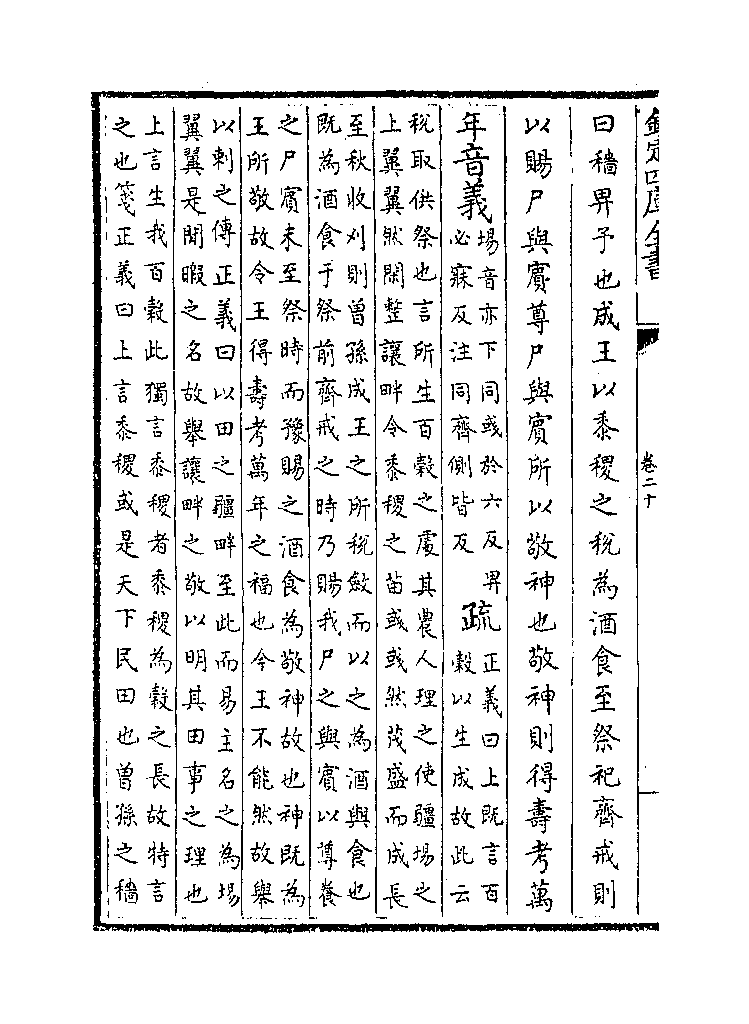 欽定四庫全書
卷二十
曰穡畀予也成王以黍稷之稅為酒食至祭祀齊戒則
以賜尸與賓尊尸與賓所以敬神也敬神則得壽考萬
年音義
場音亦下同彧於六反畀
必寐反注同齊側皆反
疏
正義曰上既言百
穀以生成故此云
稅取供祭也言所生百穀之處其農人理之使疆場之
上翼翼然閑整讓畔令黍稷之苗彧彧然茂盛而成長
至秋收刈則曾孫成王之所稅斂而以之為酒與食也
既為酒食于祭前齊戒之時乃賜我尸之與賓以尊養
之尸賓未至祭時而豫賜之酒食為敬神故也神既為
王所敬故令王得壽考萬年之福也今王不能然故舉
以刺之傳正義曰以田之疆畔至此而易主名之為場
翼翼是閒暇之名故舉讓畔之敬以明其田事之理也
上言生我百穀此獨言黍稷者黍稷為穀之長故特言
之也箋正義曰上言黍稷或是天下民田也曾孫之穡